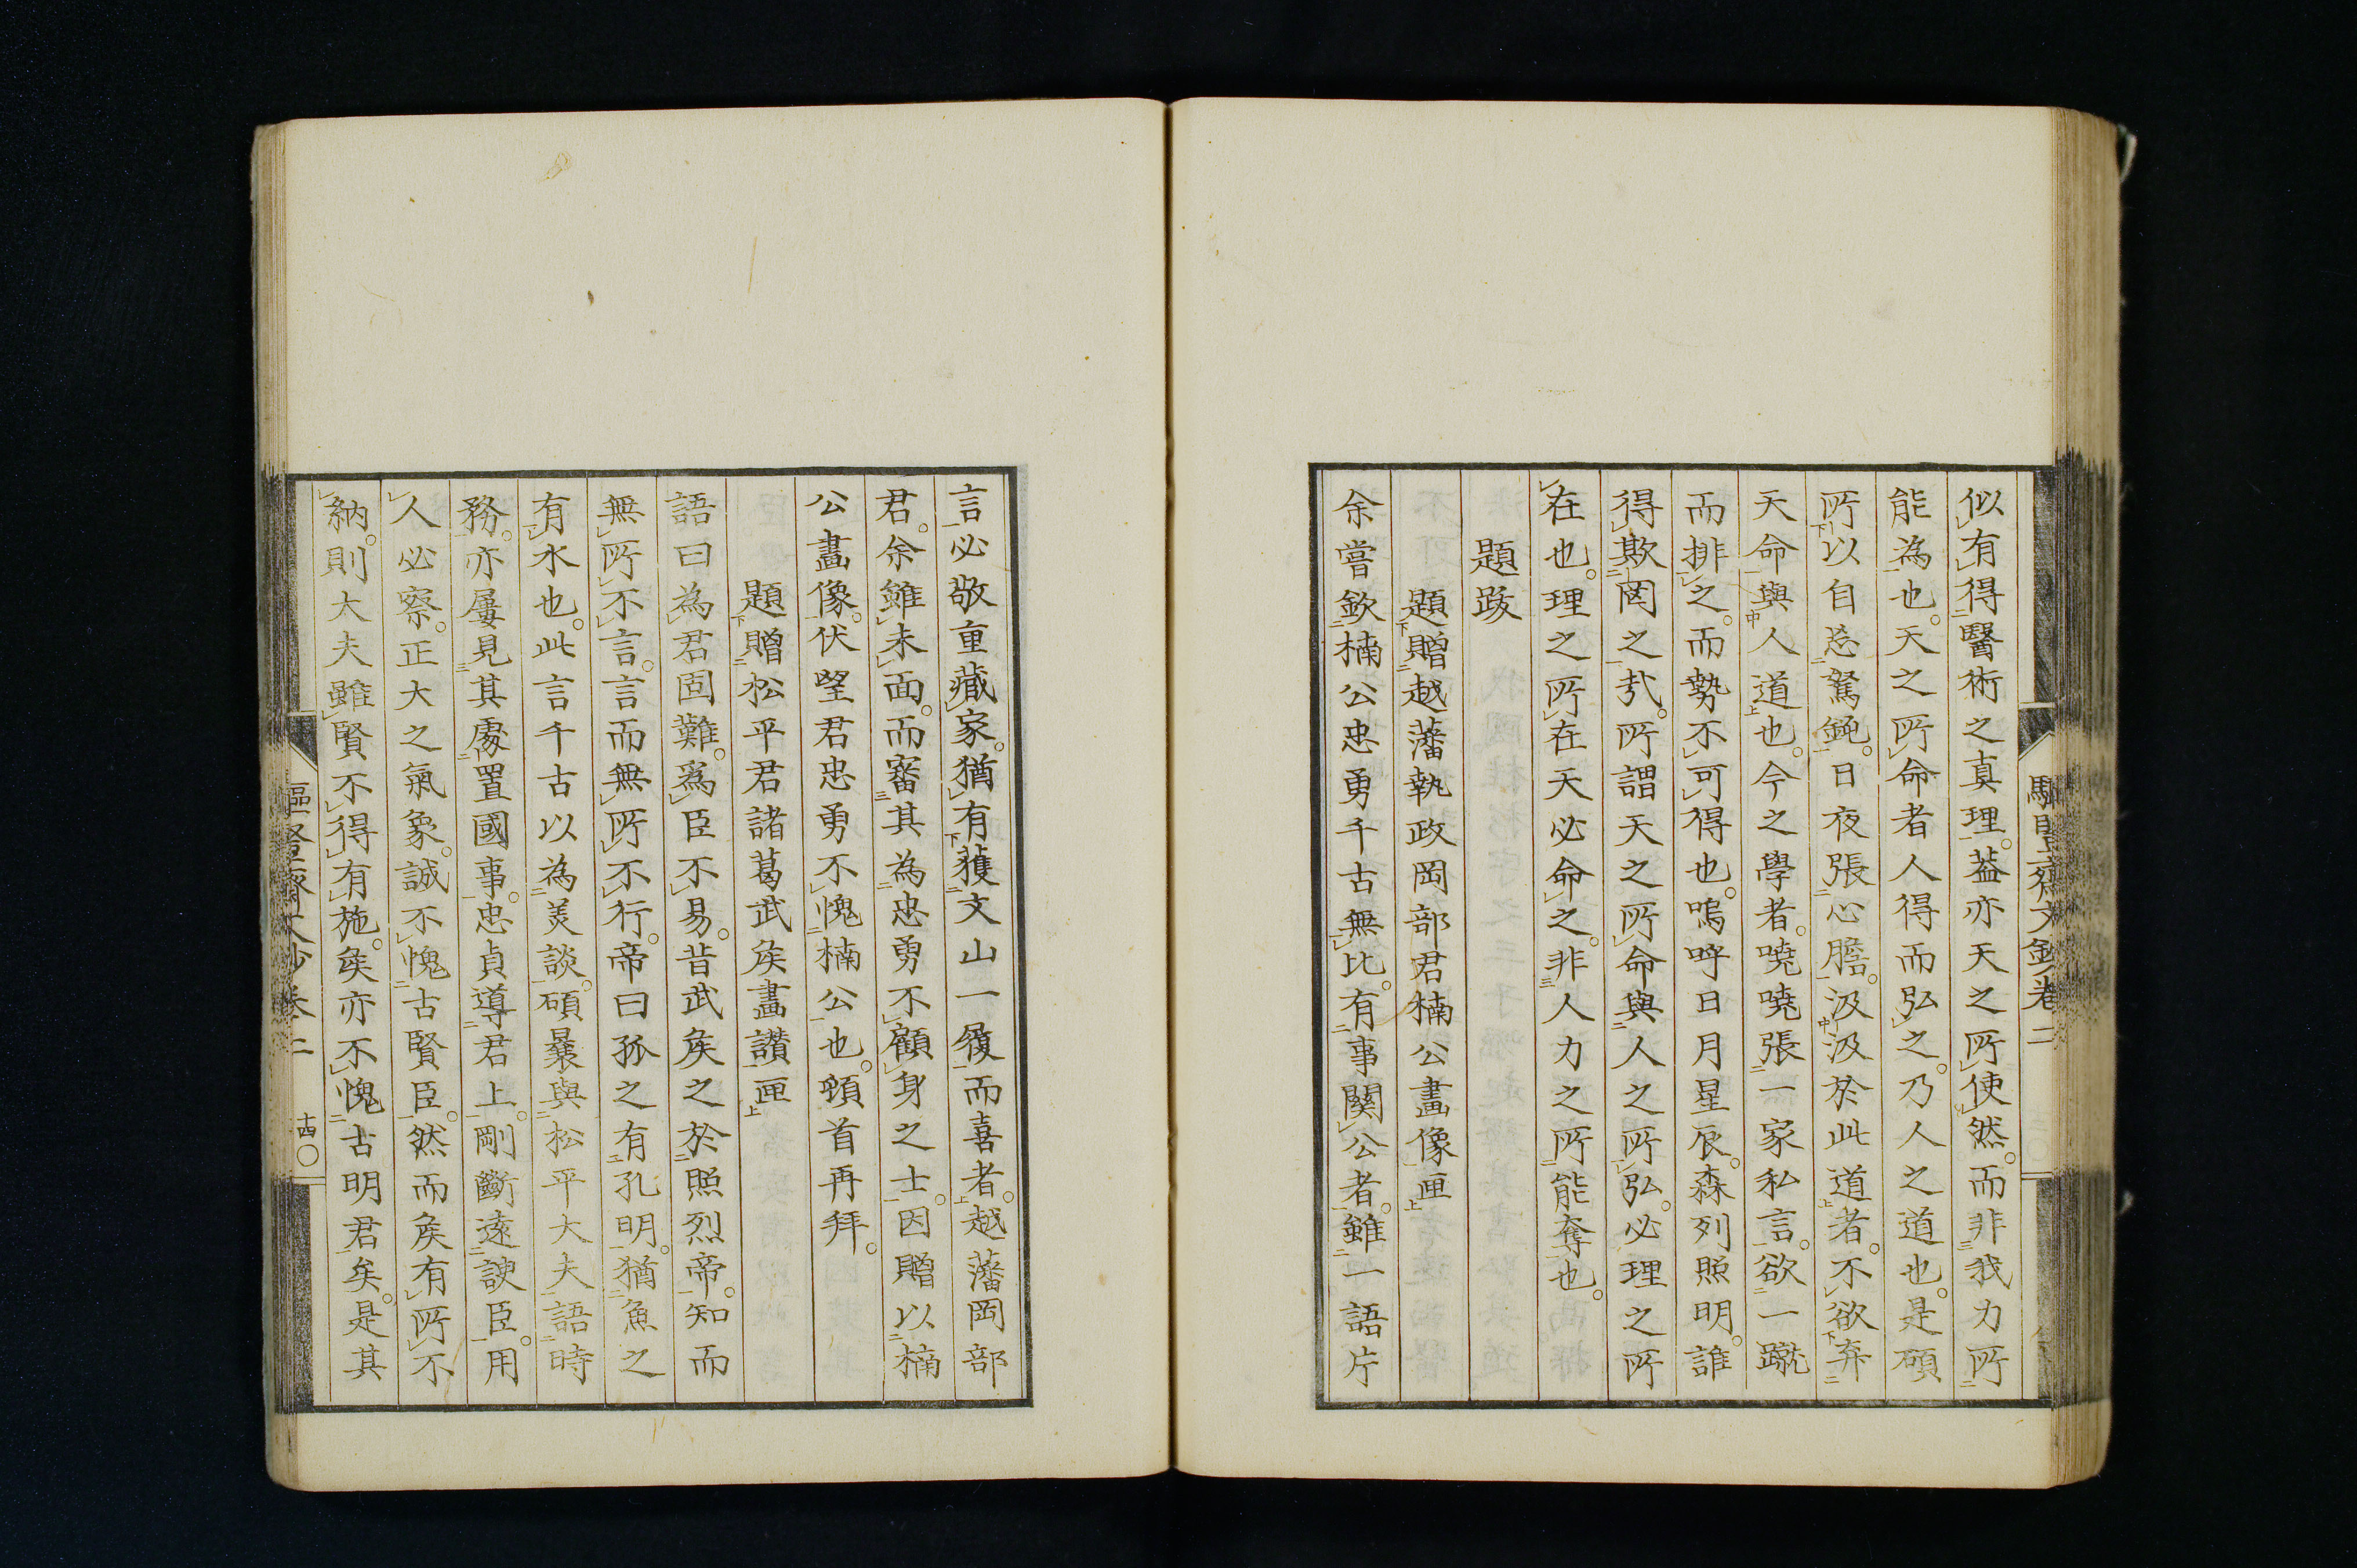 似有得醫術之真理。蓋亦天之所使然。而非我力所
能為也。天之所命者人得而弘之。乃人之道也。是碩
所以自忘駑鈍。日夜張心膽。汲汲於此道者。不欲弃
天命與人道也。今之學者。嘵嘵張一家私言。欲一蹴
而排之。而勢不可得也。嗚呼日月星辰。森列照明。誰
得欺罔之哉。所謂天之所命與人之所弘。必理之所
在也。理之所在天必命之。非人力之所能奪也。
題跋
題贈越藩執政岡部君楠公畫像匣
余嘗欽楠公忠勇千古無比。有事關公者。雖一語片
言必敬重藏家。猶有獲文山一履而喜者。越藩岡部
君。余雖未面。而審其為忠勇不顧身之士。因贈以楠
公畫像。伏望君忠勇不愧楠公也。頓首再拜。
題贈松平君諸葛武矦畫讚匣
語曰為君固難。爲臣不易。昔武矦之於照烈帝。知而
無所不言。言而無所不行。帝曰孤之有孔明。猶魚之
有水也。此言千古以為美談。碩曩與松平大夫語時
務。亦屢見其處置國事。忠貞導君上。剛斷遠諛臣。用
人必察。正大之氣象。誠不愧古賢臣。然而矦有所不
納。則大夫雖賢不得有施。矦亦不愧古明君矣。是其